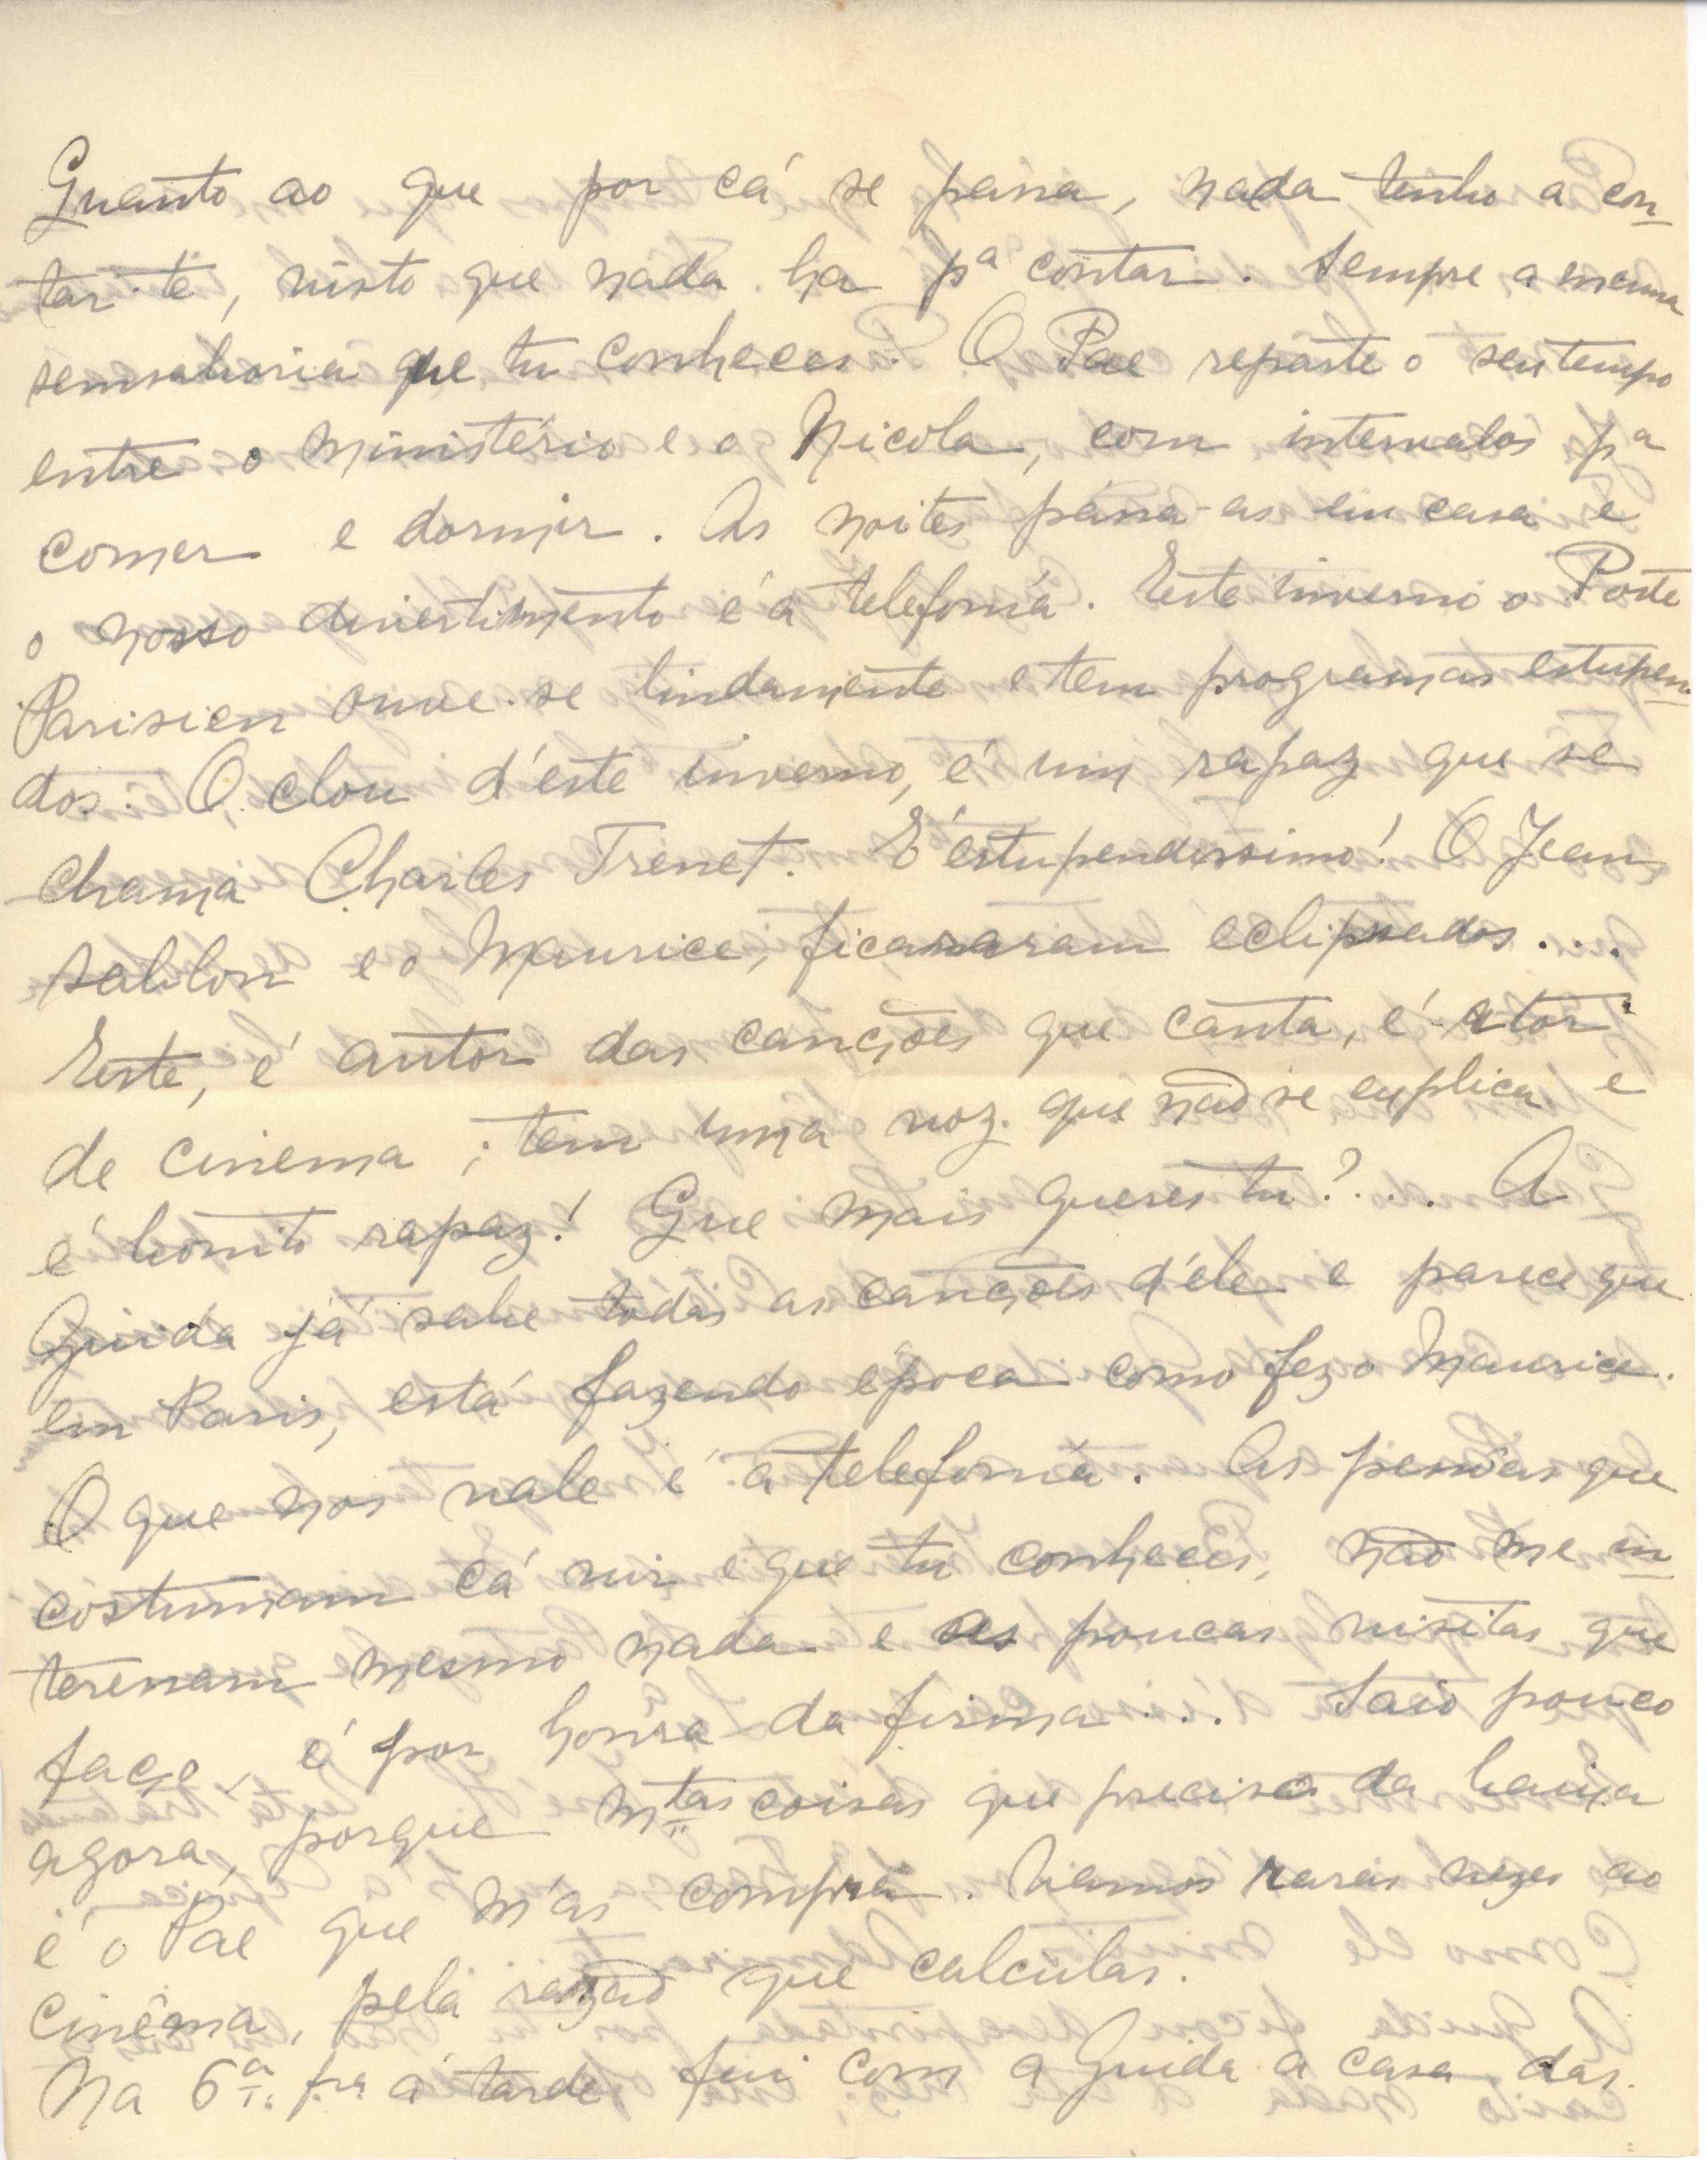 Quanto ao que por cá se passa, nada tenho a con-
tar-te, visto que nada ha pª contar. Sempre a mesma
semsaboria que tu conheces. O Pae reparte o seu tempo
entre o Ministério e o Nicola, com intervalos pª
comer e dormir. As noites passa-as em casa e
o nosso divertimento é a telefonia. Este inverno o Poste
Parisien ouve-se lindamente e tem programas estupen-
dos. O clou d'este inverno, é um rapaz que se
chama Charles Trenet. É estupendissimo! O Jean
Sablon e o Maurice, ficaram eclipsados...
Este, é autor das canções que canta, é ator
de cinema; tem uma voz que não se explica e
é bonito rapaz! Que mais queres tu?... A
Guida já sabe todas as canções d'éle e parece que
em Paris, está fazendo época como fez o Maurice.
O que nos vale é a telefonia. As pessoas que
costumam cá vir e que tu conheces, não me in-
teressam mesmo nada e as poucas visitas que
faço, é por honra da firma... Saio pouco
agora, porque mtas coisas que preciso da baixa
é o Pae que m'as compra. Vamos raras vezes ao
cinêma, pela razão que calculas.
Na 6ª fra á tarde fui com a Guida a casa das